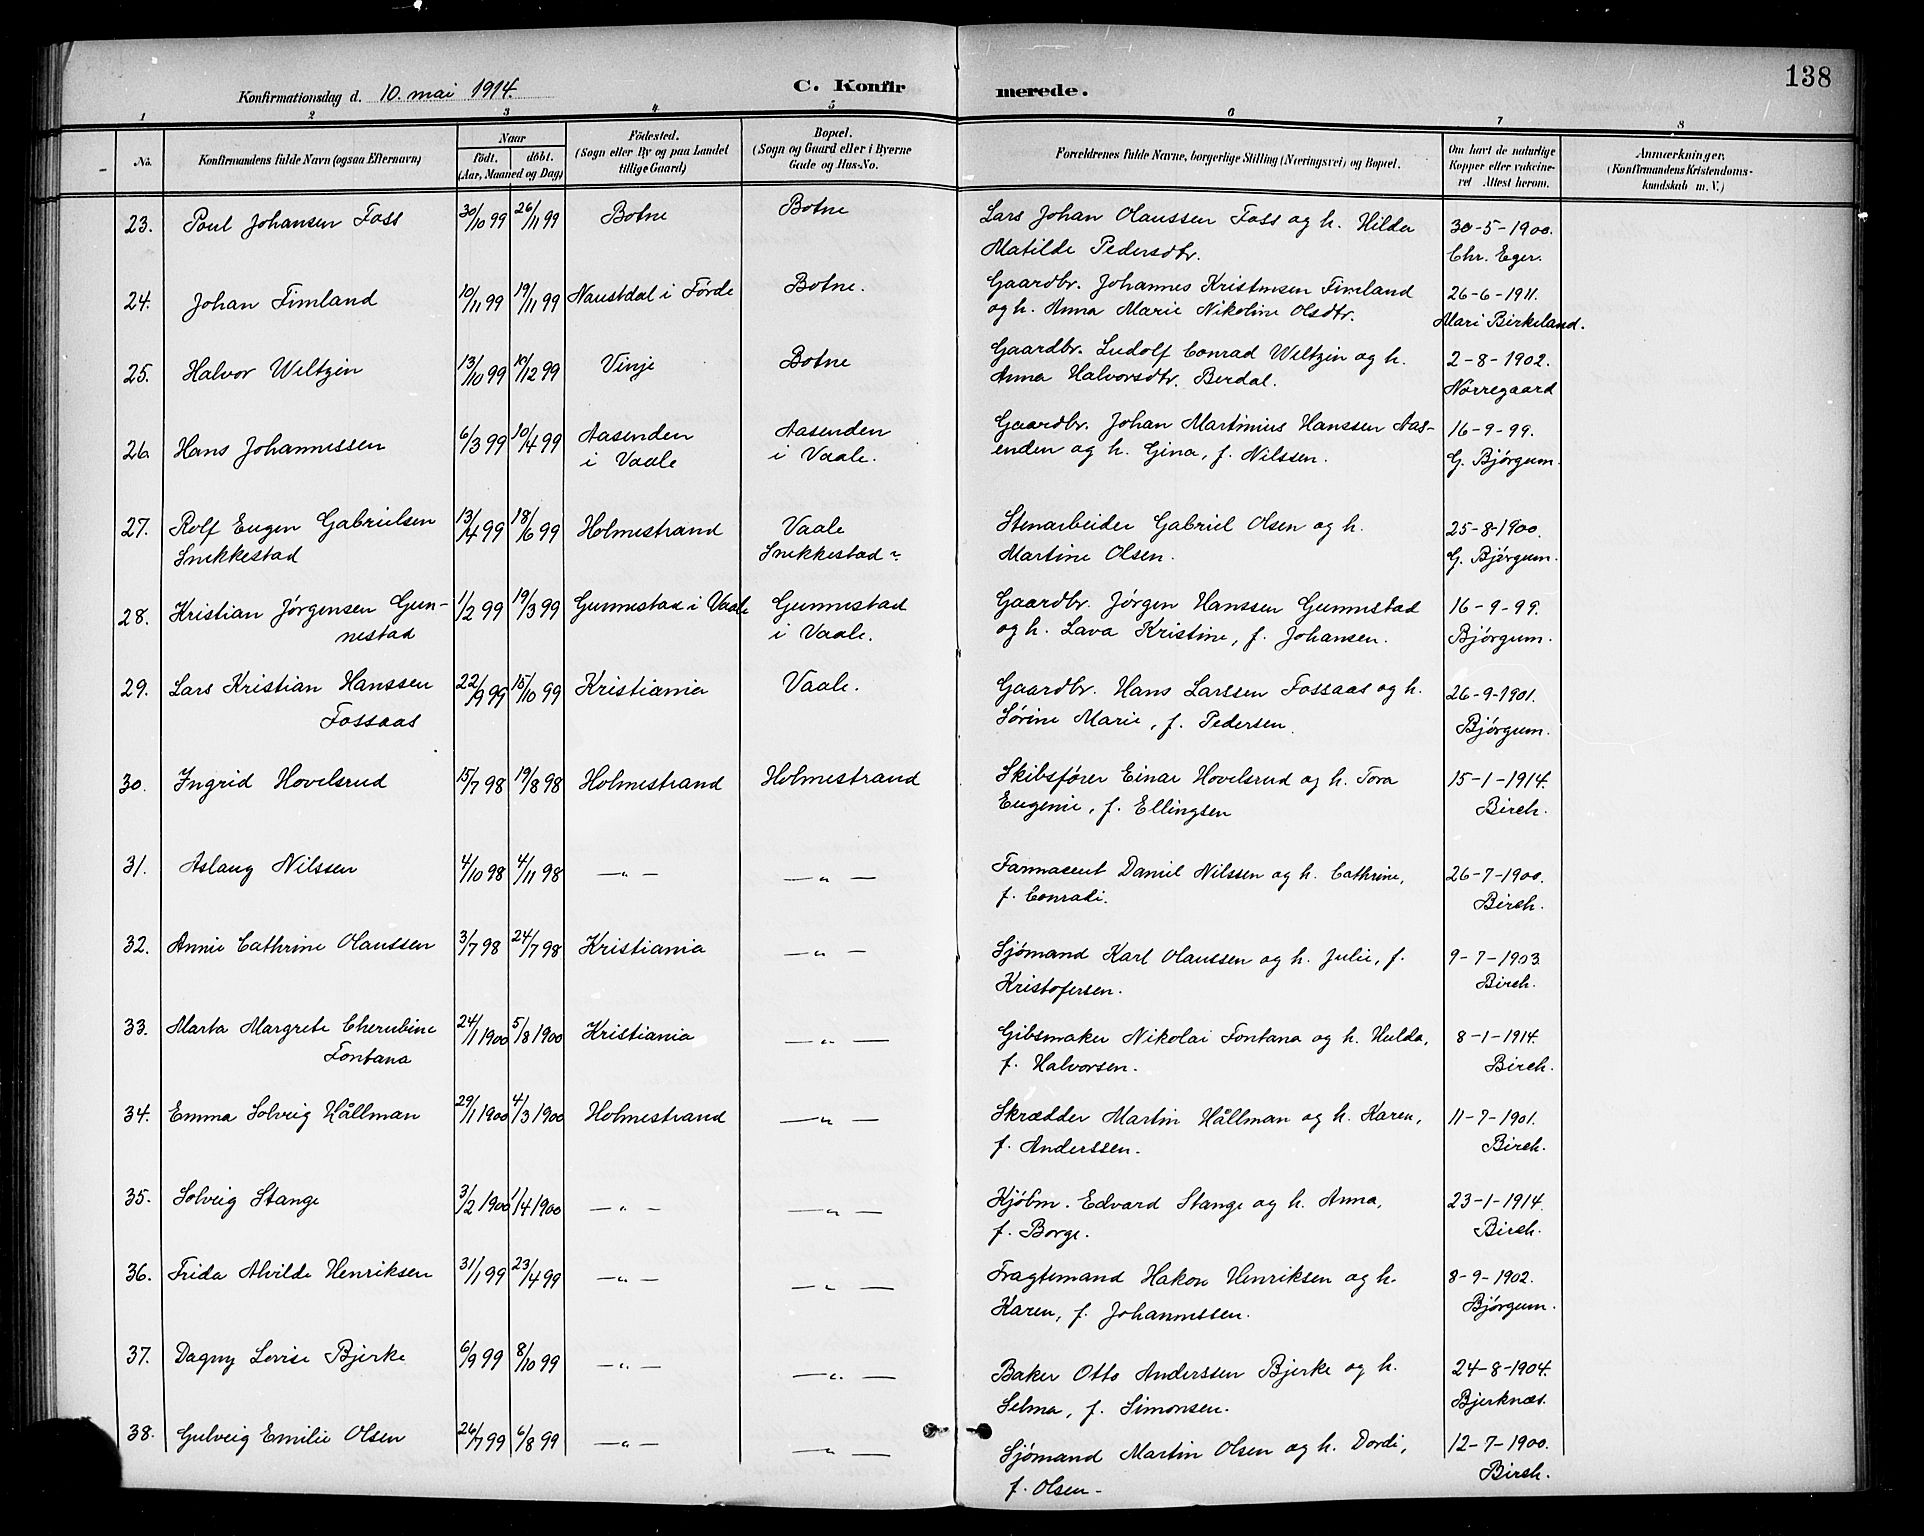 138
Konfirmationsdag d. 10. mai 1914.
C. Konfirmerede.
1 2 3 4 5 6 7 8
No.
Konfirmandens fulde Navn (ogsaa Efternavn)
Naar
födt. döbt.
(Aar, Maaned og Dag)
Födested.
(Sogn eller By og paa Landet
tillige Gaard.)
Bopæl.
(Sogn og Gaard eller i Byerne
Gade og Hus-No.
Forældrenes fulde Navne, borgerlige Stilling (Næringsvei) og Bopæl.
Om havt de naturlige
Kopper eller vakcine-
ret Attest herom.
Anmærkninger.
(Konfirmandens Kristendoms-
kundskab m. V.)
23. Poul Johansen Foss 30/10 99 26/11 99 Botne Botne Lars Johan Olaussen Foss og h. Hilda 30-5-1900.
Matilde Pedersdtr. Chr. Eger.
24. Johan Fimland 10/11 99 19/11 99 Naustdal i Förde Botne. Gaardbr. Johannes Kristensen Fimland 26-6-1911.
og h. Anna Marie Nikoline Olsdtr. Mari Birkeland.
25. Halvor Weltzin 13/10 99 10/12 99 Vinje Botne Gaardbr. Ludolf Conrad Weltzin og h. 2-8-1902.
Anna Halvorsdtr. Berdal. Nörregaard
26 Hans Johannessen 6/3 99 10/4 99 Aasenden Aasenden Gaardbr. Johan Martinius Hanssen Aas- 16-9-99.
i Vaale i Vaale. enden og h. Gina, f. Nilssen. G. Bjórgum.
27. Rolf Eugen Gabrielsen 13/4 99 18/6 99 Holmestrand Vaale Stenarbeider Gabriel Olsen og h. 25-8-1900.
Snekkestad Snekkestad Martine Olsen. G. Bjórgum.
28. Kristian Jórgensen Gun- 1/2 99 19/3 99 Gunnestad i Vaale Gunnestad Gaardbr. Jórgen Hanssen Gunnestad 16-9-99.
nestad i Vaale. og h. Lava Kristine, f. Johansen. Bjórgum.
29. Lars Kristian Hanssen 22/9 99 15/10 99 Kristiania Vaale. Gaardbr. Hans Larssen Fossaas og h. 26-9-1901.
Fossaas Sórine Marie, f. Pedersen. Bjórgum.
30. Ingrid Hovelsrud 15/7 98 19/8 98 Holmestrand Holmestrand Skibsfórer Einar Hovelsrud og h. Tora 15-1-1914.
Eugenie, f. Ellingsen Birch.
31. Aslaug Nilssen 4/10 98 4/11 98 —"— —"— Farmaceut Daniel Nilssen og h. Cathrine, 26-7-1900.
f. Conradi. Birch.
32. Annie Cathrine Olaussen 3/7 98 24/7 98 Kristiania —"— Sjómand Karl Olaussen og h. Julie, f. 9-7-1903
Kristofersen. Birch.
33. Marta Margrete Cherubine 24/1 1900 5/8 1900 Kristiania —"— Gibsmaker Nikolai Fontana og h. Hulda, 8-1-1914.
Fontana f. Halvorsen. Birch.
34. Emma Solveig Hållman 29/1 1900 4/3 1900 Holmestrand —"— Skrædder Martin Hållman og h. Karen, 11-7-1901.
f. Anderssen. Birch.
35. Solveig Stange 3/2 1900 1/4 1900 —"— —"— Kjóbm. Edvard Stange og h. Anna, 23-1-1914.
f. Borge. Birch.
36. Frida Alvilde Henriksen 31/1 99 23/4 99 —"— —"— Fragtemand Hakon Henriksen og h. 8-9-1902.
Karen, f. Johannessen. Bjórgum.
37. Dagny Lovise Bjerke 6/9 99 8/10 99 —"— —"— Baker Otto Anderssen Bjerke og h. 24-8-1904.
Selma, f. Simonsen. Bjerknæs.
38. Gulveig Emilie Olsen 26/7 99 6/8 99 —"— —"— Sjómand Martin Olsen og h. Dordi, 12-7-1900.
f. Olsen - Birch.